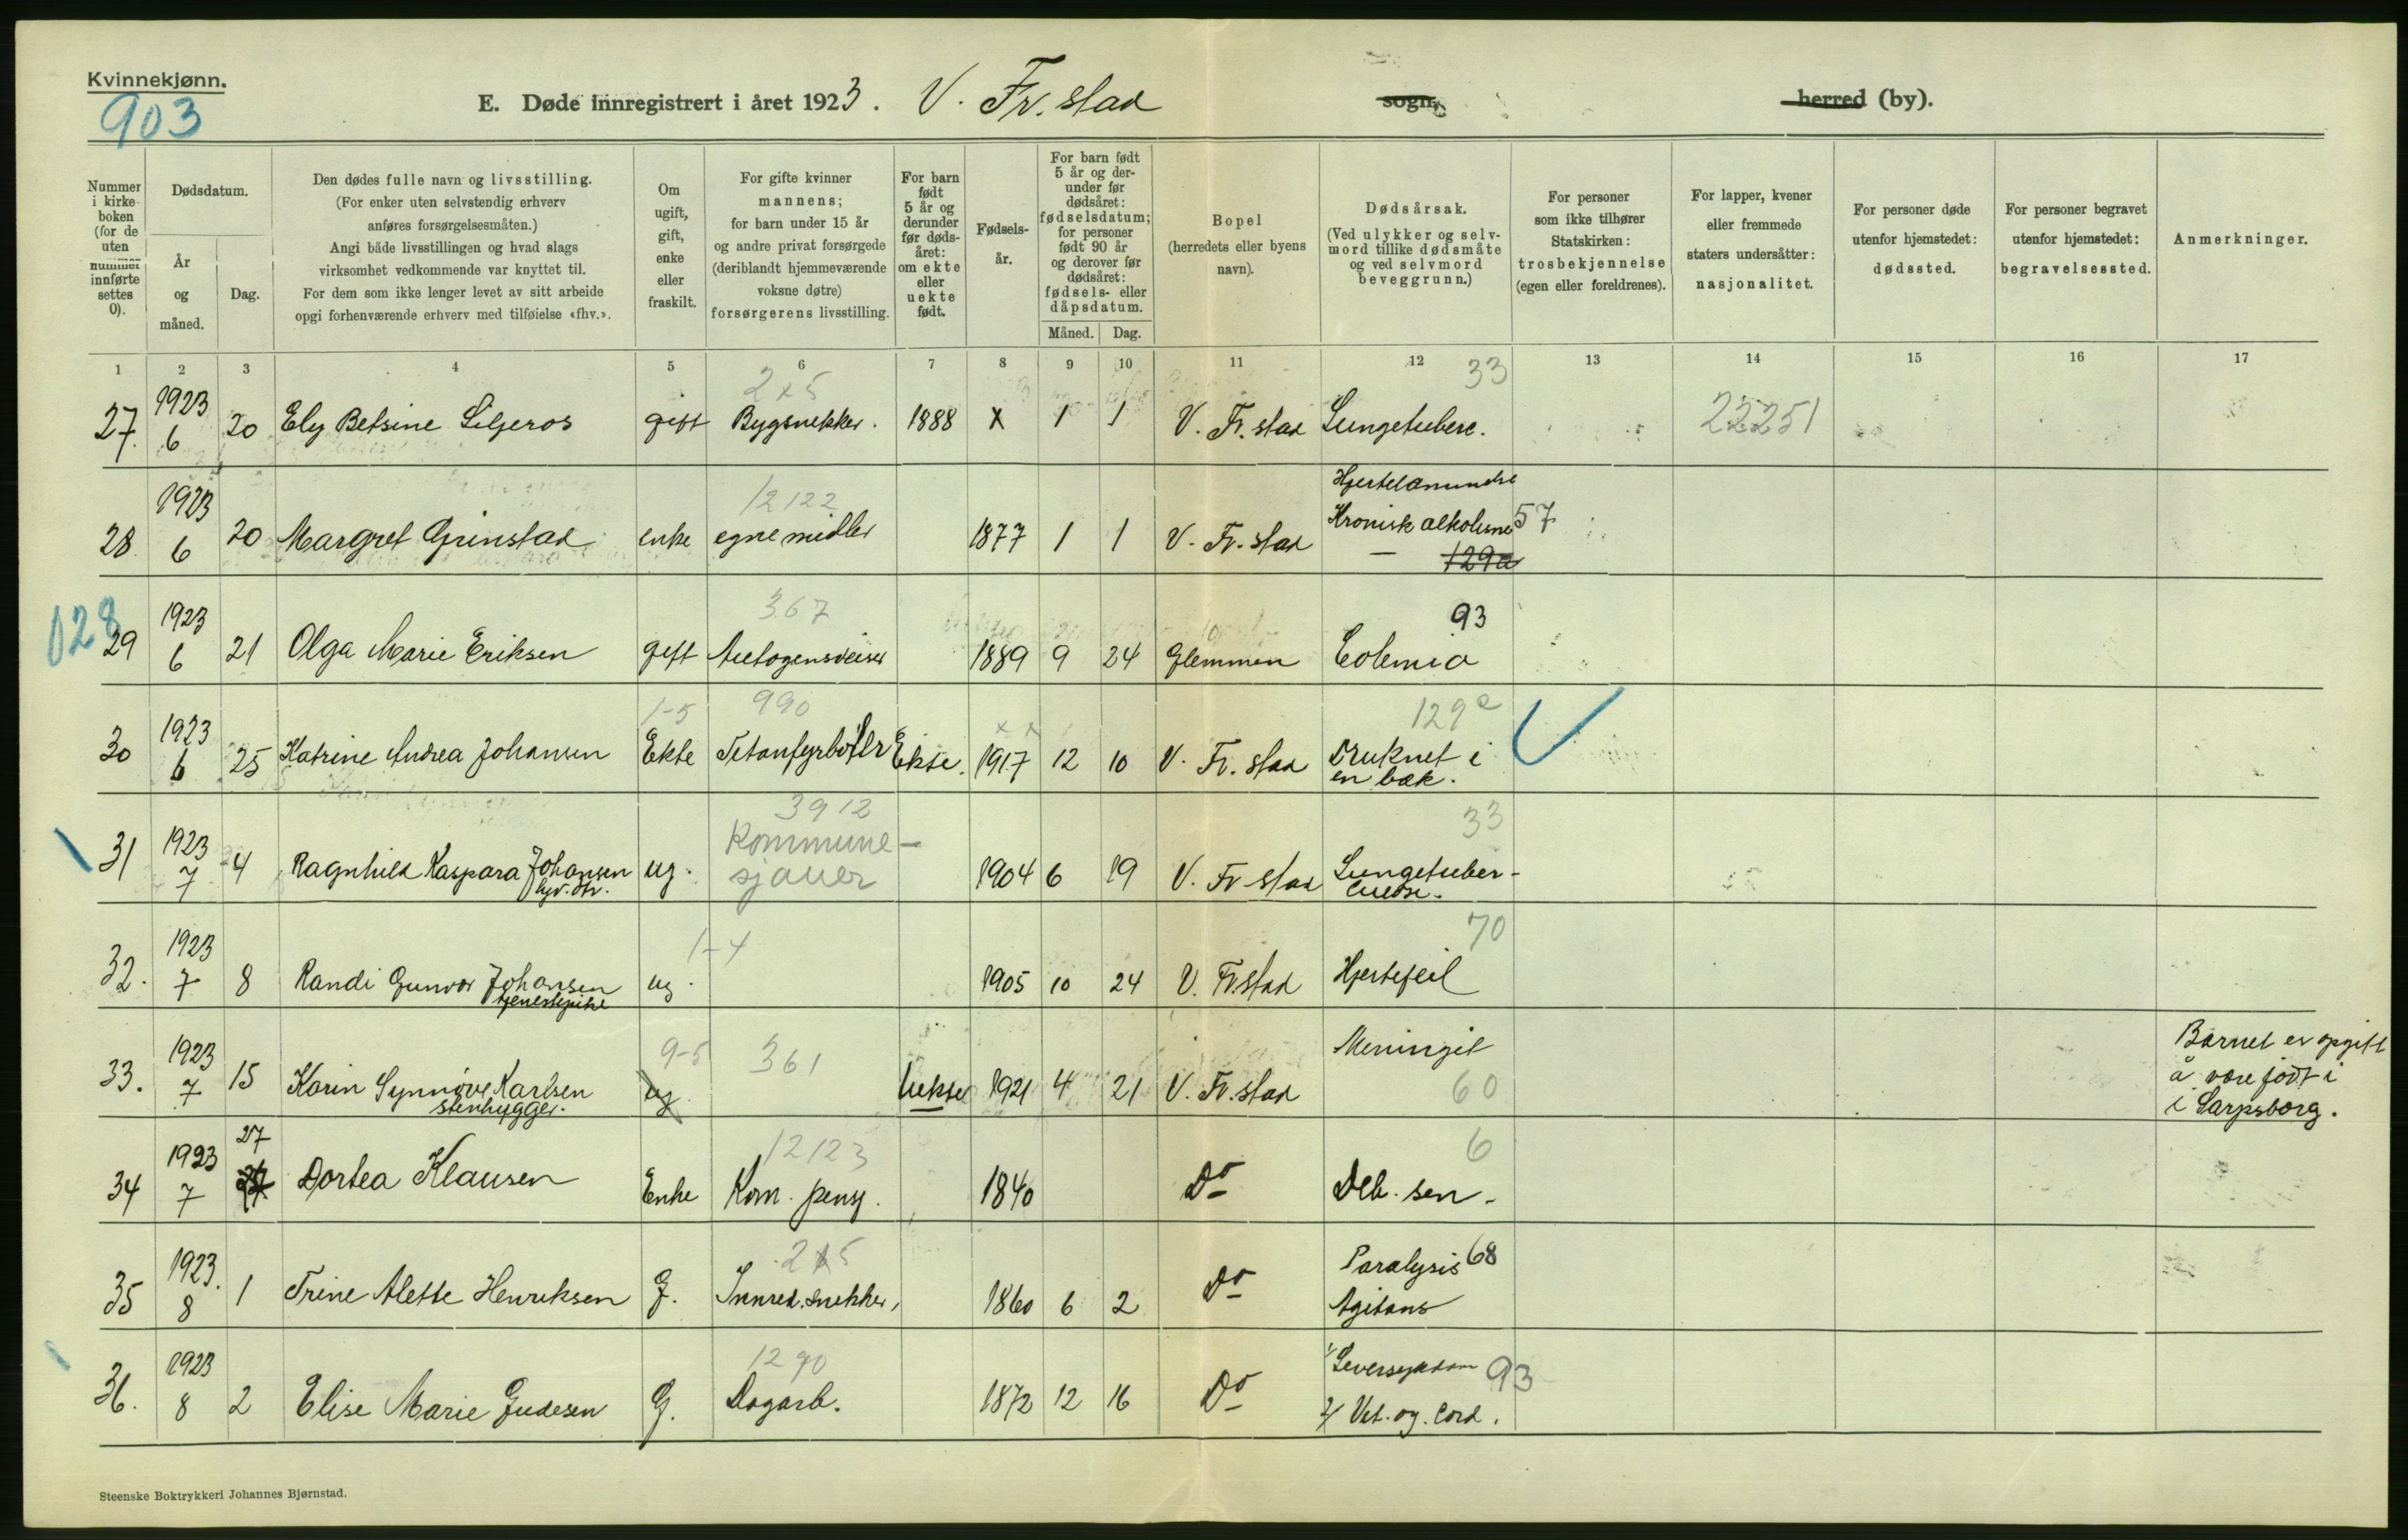 Kvinnekjønn.
903
E. Døde innregistrert i året 1923. V. Fr.stad sogn, herred (by).
Nummer i kirkeboken (for de uten nummer innførte settes 0).
Dødsdatum.
År og måned.
Dag.
Den dødes fulle navn og livsstilling.
(For enker uten selvstendig erhverv anføres forsørgelsesmåten.)
Angi både livsstillingen og hvad slags virksomhet vedkommende var knyttet til.
For dem som ikke lenger levet av sitt arbeide opgi forhenværende erhverv med tilføielse «fhv.».
Om ugift, gift, enke eller fraskilt.
For gifte kvinner mannens; for barn under 15 år og andre privat forsørgede (deriblandt hjemmeværende voksne døtre) forsørgerens livsstilling.
For barn født 5 år og derunder før dødsåret: om ekte eller uekte født.
Fødselsår.
For barn født 5 år og derunder før dødsåret: fødselsdatum; for personer født 90 år og derover før dødsåret: fødsels- eller dåpsdatum.
Måned. Dag.
Bopel (herredets eller byens navn).
Dødsårsak. (Ved ulykker og selvmord tillike dødsmåte og ved selvmord beveggrunn.)
For personer som ikke tilhører Statskirken: trosbekjennelse (egen eller foreldrenes).
For lapper, kvener eller fremmede staters undersåtter: nasjonalitet.
For personer døde utenfor hjemstedet: dødssted.
For personer begravet utenfor hjemstedet: begravelsessted.
Anmerkninger.
1 2 3 4 5 6 7 8 9 10 11 12 13 14 15 16 17
2x5 33
27. 1923 6 20 Ely Betsine Liljeros gift Bygsnekker. 1888 x 1 1 V. Fr.stad Lungetuberc. 22251
12122 Hjertelammelse
28. 1923 6 20 Margret Grinstad enke egne midler 1877 1 1 V. Fr.stad Kronisk alkoholisme 57
129a
128 367 93
29 1923 6 21 Olga Marie Eriksen gift Autogensveiser 1889 9 24 Glemmen Eclemia
1-5 990 129a
30 1923 6 25 Katrine Andrea Johansen Ekte Titanfyrbøter Ekte. 1917 12 10 V. Fr.stad Druknet i
en bæk.
3912 33
31 1923 7 4 Ragnhild Kaspara Johansen ug. Kommune-
sjauer 1904 6 19 V. Fr stad Lungetuber-
culose.
1-4 70
32. 1923 7 8 Randi Gunvor Johansen ug. 1905 10 24 V. Fr.stad Hjertefeil
tjenestepike
9-5 361 Meningit
33. 1923 7 15 Karin Synnøve Karlsen ug. Uekte 1921 4 21 V. Fr.stad 60
stenhygger.
Barnet er opgitt
å være født i
i Sarpsborg.
27 12123 6
34 1923 7 Dortea Klausen Enke Kom. pensj. 1840 Do Deb. sen.
2x5
35 1923. 8 1 Trine Alette Henriksen G. Innred.snekker, 1860 6 2 Do Paralysis 68
Agitans
1290
36. 1923 8 2 Elise Marie Gudesen G. Dagarb. 1872 12 16 Do 1/ Leversykdom 93
2/ Vit. og. Cord.
Steenske Boktrykkeri Johannes Bjørnstad.